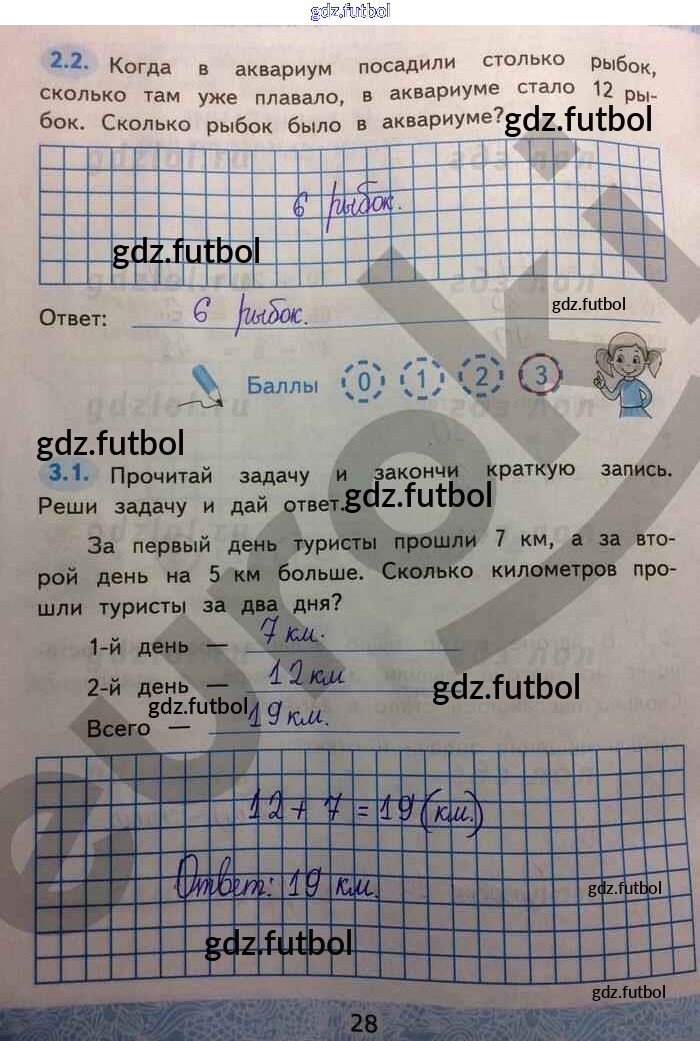 gdz.futbol
2.2. Когда в аквариум посадили столько рыбок,
сколько там уже плавало, в аквариуме стало 12 ры-
бок. Сколько рыбок было в аквариуме?
gdz.futbol
6 рыбок.
gdz.futbol
gdz.futbol
Ответ: 6 рыбок.
Баллы 0 1 2 3
gdz.futbol
3.1. Прочитай задачу и закончи краткую запись.
Реши задачу и дай ответ.
gdz.futbol
За первый день туристы прошли 7 км, а за вто-
рой день на 5 км больше. Сколько километров про-
шли туристы за два дня?
1-й день — 7 км.
2-й день — 12 км
gdz.futbol
gdz.futbol
Всего — 19 км.
12 + 7 = 19 (км.)
Ответ: 19 км.
gdz.futbol
gdz.futbol
gdz.futbol
28
euroki